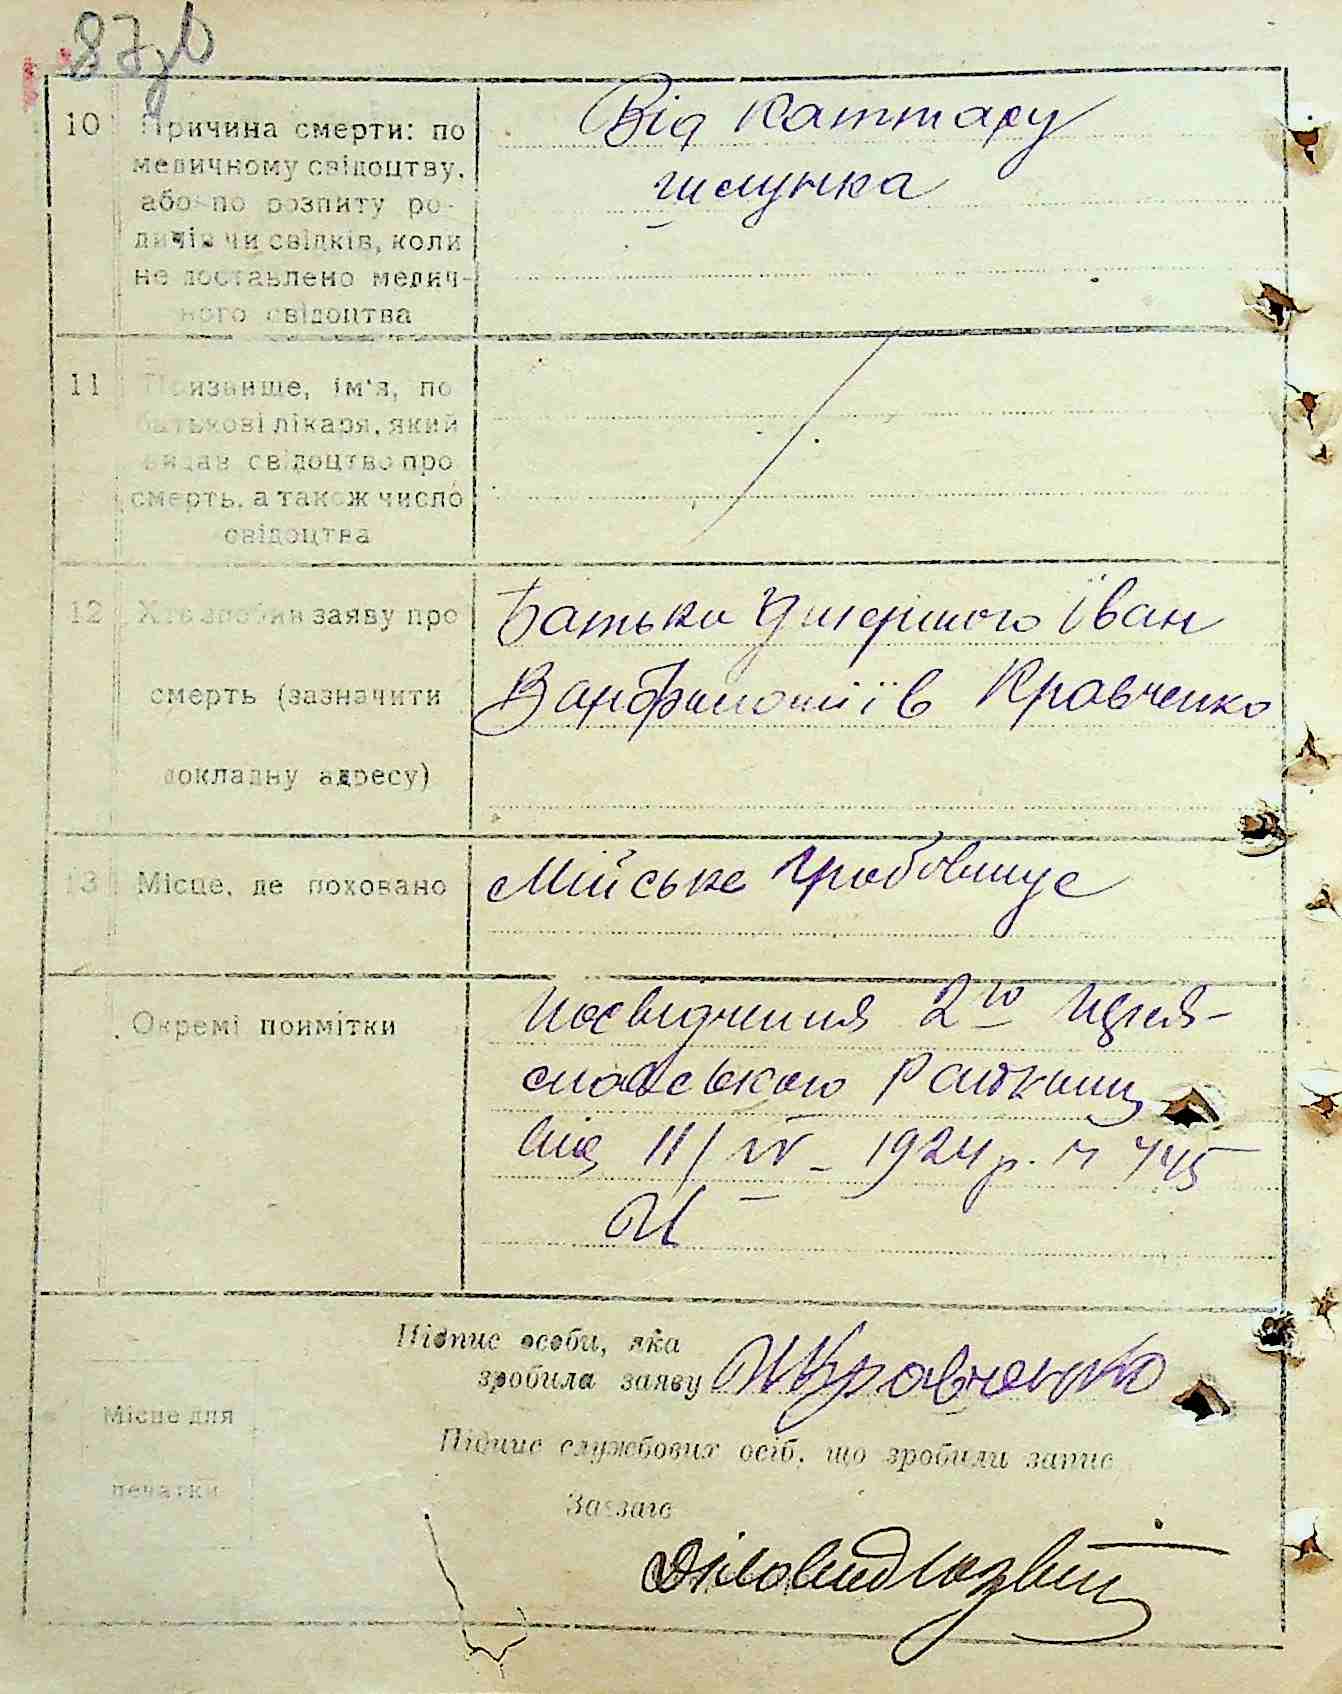 87зв
10 Причина смерти: по
медичному свідоцтву,
або по розпиту ро-
дичів чи свідків, коли
не доставлено медич-
ного свідоцтва
Від каттару
шлунка
11 Прізвище, ім'я, по
батькові лікаря, який
видав свідоцтво про
смерть, а також число
свідоцтва
12 Хто зробив заяву про
смерть (зазначити
докладну адресу)
Батько Умершого Іван
Кравченко
13 Місце, де поховано
Мійське гробовище
Окремі помітки
Посвідчення 2го
від 11/IV - 1924 р. ч 445
Підпис особи, яка
зробила заяву ИКравченко
Підпис службових осіб, що зробили запис
Завзагс
Діловид
Місце для
печатки